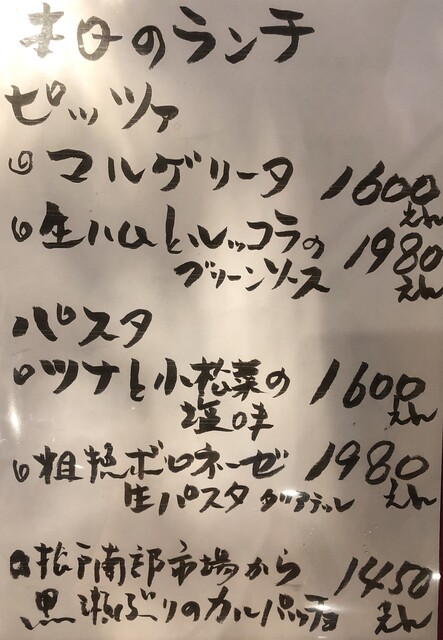 本日のランチ
ピッツァ
マルゲリータ 1600えん
生ハムとルッコラの 1980えん
グリーンソース
パスタ
ツナと小松菜の 1600えん
塩味
粗挽ボロネーゼ 1980えん
生パスタ タリアテッレ
松戸南部市場から 1450えん
黒瀬ぶりのカルパッチョ